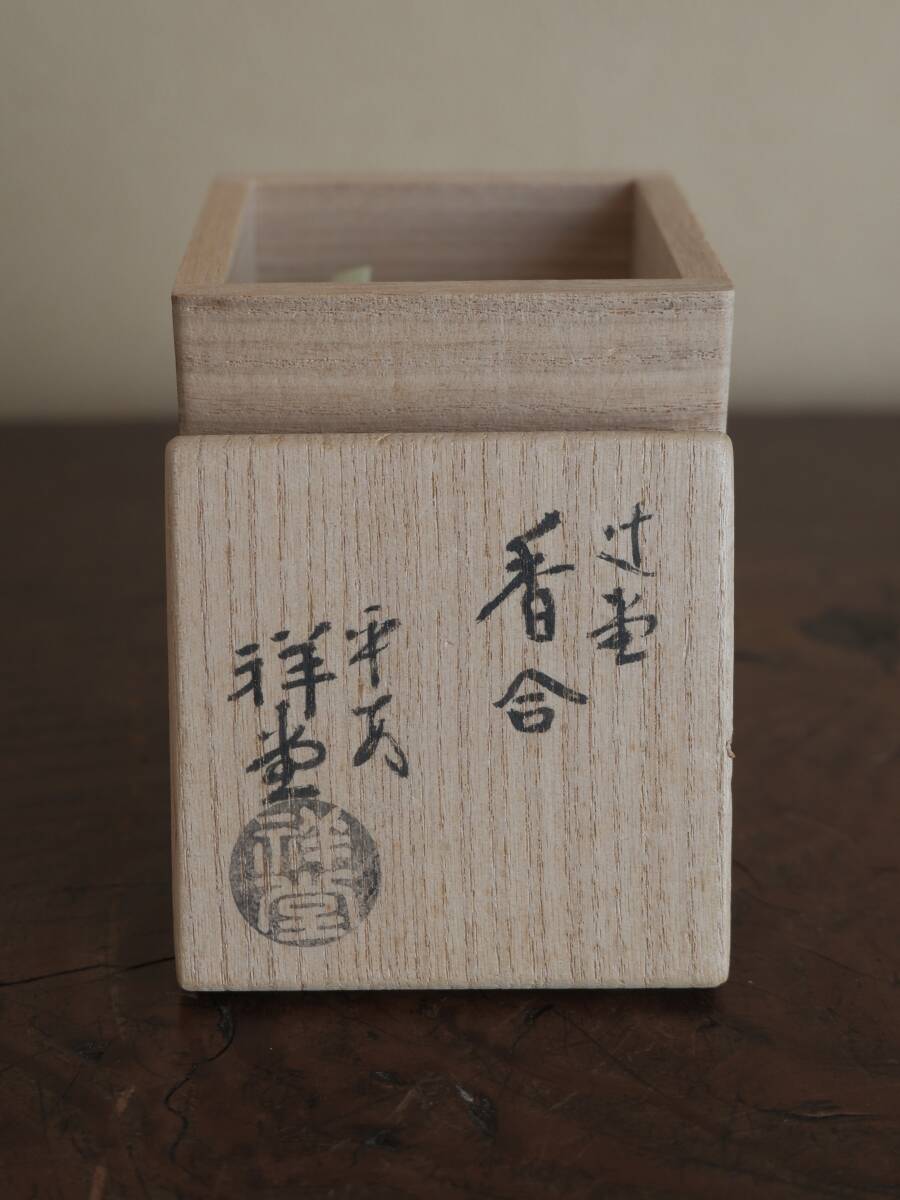 辻堂
香合
平安
祥堂
祥堂